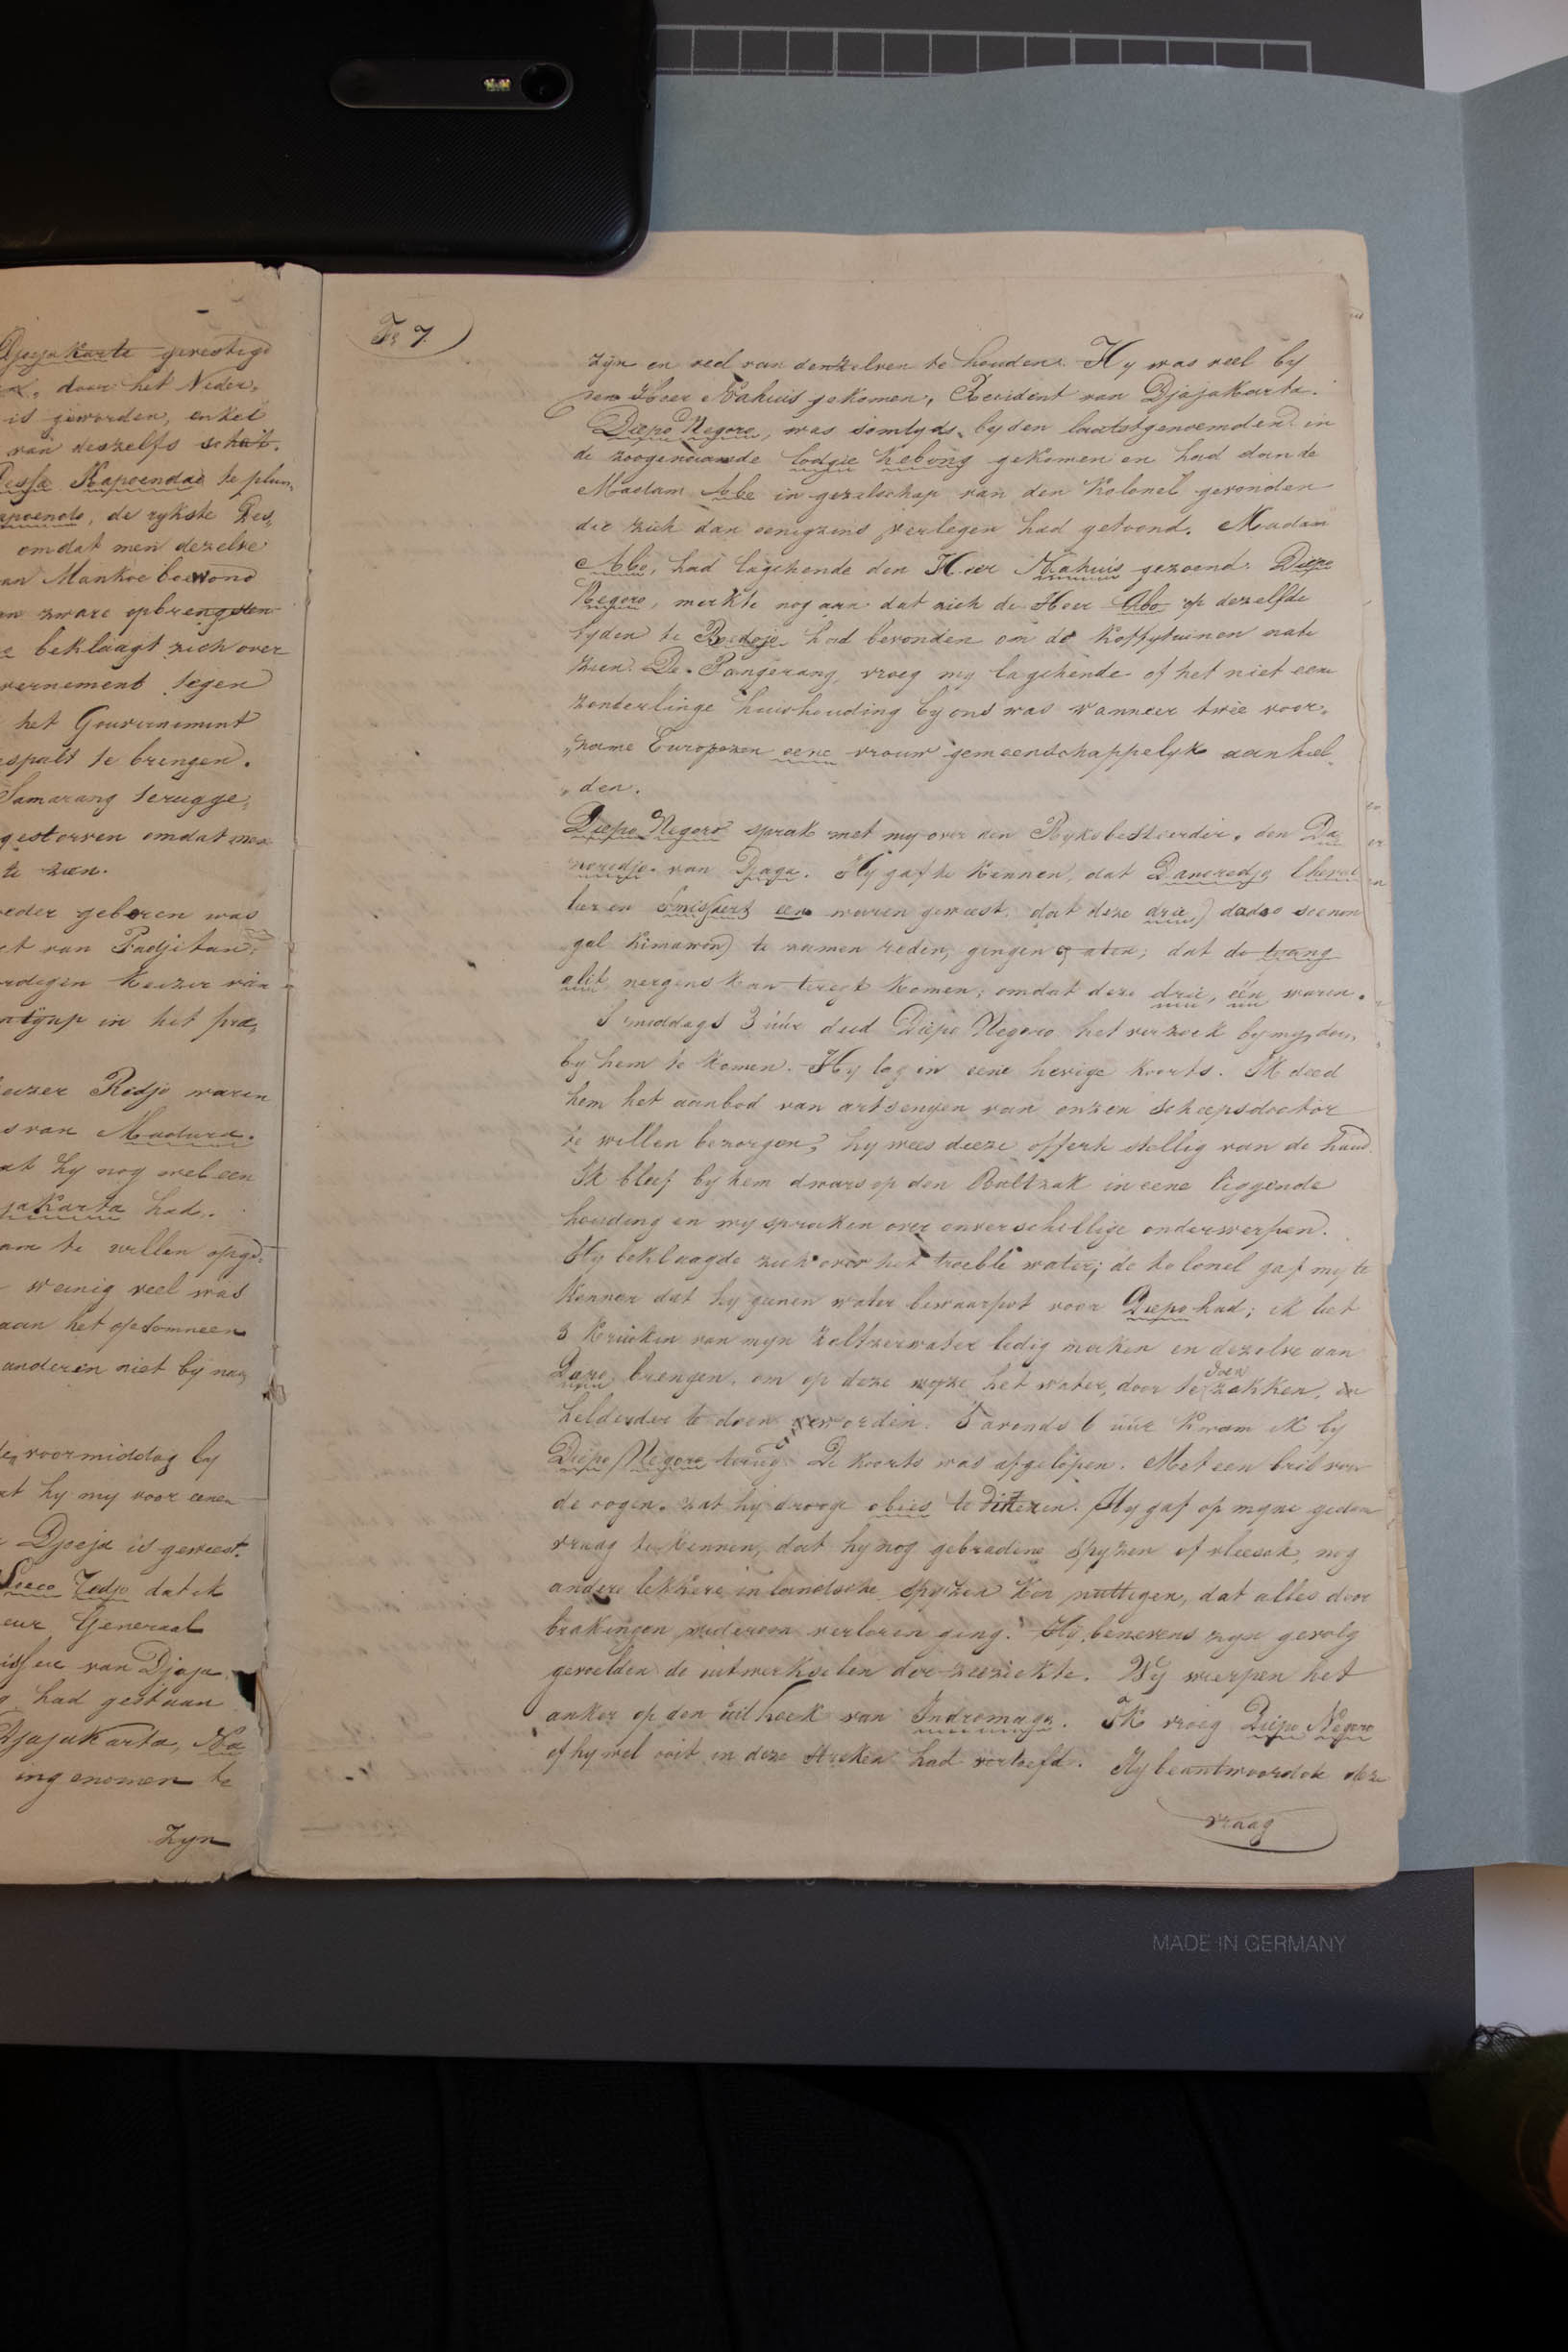 Djoja Karta gevestigd
door het Neder,
is geworden, enkel
van deszelfs schat.
Dessa Kapoendae te plun,
de rykste Des,
omdat men dezelve
an Mankoe bowono
an zware opbrengsten
beklaagt zich over
vernement tegen
het Gouvernement
espalt te brengen.
Samarang terugge,
gestorven omdat men
te zien.
eder geboren was
et van Padjitan.
rdigen Keizer van
in het pra,
eizer Redjo waren
s van Madura.
at hy nog wel een
jakarta had.
am te willen opge,
weinig veel was
aan het opsomneen
anderen niet by na,
de voormiddag by
at hy my voor eenen
Djoja is geweest.
dat ik
eur Generaal
van Djoja
had gestaan
Djojakarta, Na
ingenomen te
Zyn
Fo 7.
zyn en veel van denzelven te houden. Hy was veel by
den Heer Nahuis gekomen, Resident van Djojakarta.
Diepo Negoro, was somtyds by den laatstgenoemden in
de zoogenaamde lodgie kebong gekomen en had dan de
Madam Abo in gezelschap van den Kolonel gevonden
die zich dan eenigzins verlegen had getoond. Madam
Abo, had lagchende den Heer Nahuis gezoend. Diepo
Negoro, merkte nog aan dat zich de Heer Abo op dezelfde
tyden te Bedojo had bevonden om de Koffytuinen na te
zien. De Pangerang, vroeg my lagchende of het niet eene
zonderlinge huishouding by ons was wanneer twee voor,
„name Europezen eene vrouw gemeenschappelyk aanhiel,
„den.
Diepo Negoro sprak met my over den Ryksbestierder, den Da,
noredjo van Djoga. Hy gaf te kennen, dat Danoredjo Cheval
lier en Smissert een waren geweest; dat deze drie,
te samen reden, gingen & aten; dat de toeang
alit nergens kan teregt komen; omdat deze drie, één, waren.
S' middags 3 uur deed Diepo Negoro het verzoek by my, doen,
by hem te komen. Hy lag in eene hevige koorts. Ik deed
hem het aanbod van artsenyen van onzen scheepsdoctor
te willen bezorgen, hy wees deeze offerte stellig van de hand.
Ik bleef by hem dwars op den Bultzak in eene liggende
houding en wy spraken over onverschillige onderwerpen.
Hy beklaagde zich over het troeble water; de kolonel gaf my te
kennen dat hy geenen water bewaarpot voor Diepo had; ik liet
3 Kruiken van myn Zeltzerwater ledig maken en dezelve aan
brengen, om op deze wyze het water, door te doen zakken,
helderder te doen worden. S'avonds 6 uur kwam ik by
Diepo Negoro terug. De koorts was afgelopen. Met een bril voor
de oogen zat hy drooge obies te Hy gaf op myne gedane
vraag te kennen, dat hy nog gebradene spyzen of vleesch, nog
andere lekkere inlandsche spyzen kon nuttigen, dat alles door
brakingen wederom verloren ging. Hy, benevens zyn gevolg
gevoelden de uitwerkselen der zeeziekte. Wy wierpen het
anker op den uithoek van Indromayo. Ik vroeg Diepo Negoro
of hy wel ooit in deze streken had vertoefd. Hy beantwoordde deze
vraag
MADE IN GERMANY